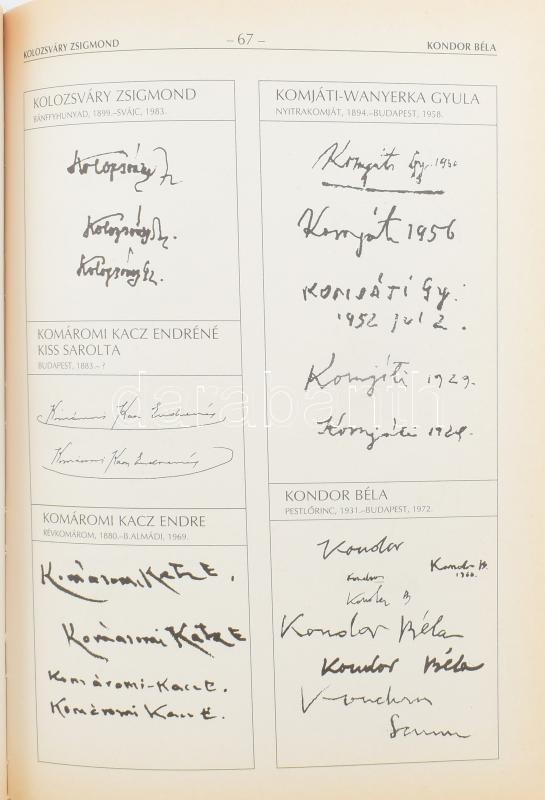 KOLOZSVÁRY ZSIGMOND
– 67 –
KONDOR BÉLA
KOLOZSVÁRY ZSIGMOND
BÁNFFYHUNYAD, 1899.–SVÁJC, 1983.
Kolozsváry
Kolozsváry
Kolozsváry
KOMÁROMI KACZ ENDRÉNÉ
KISS SAROLTA
BUDAPEST, 1883.– ?
Komáromi Kacz Endréné
Komáromi Kacz Endréné
KOMÁROMI KACZ ENDRE
RÉVKOMÁROM, 1880.–B.ALMÁDI, 1969.
Komáromi Katz E.
Komáromi Katz E
Komáromi-Kacz E.
Komáromi Kacz E.
KOMJÁTI-WANYERKA GYULA
NYITRAKOMJÁT, 1894.–BUDAPEST, 1958.
Komjáti Gy.
Komjáti 1956
KOMJÁTI Gy.
1952 júl 2.
Komjáti 1929.
Komjáti
KONDOR BÉLA
PESTLŐRINC, 1931.–BUDAPEST, 1972.
Kondor
Kondor B.
1960.
Kondor
Kondor B
Kondor Béla
Kondor Béla
darabanth